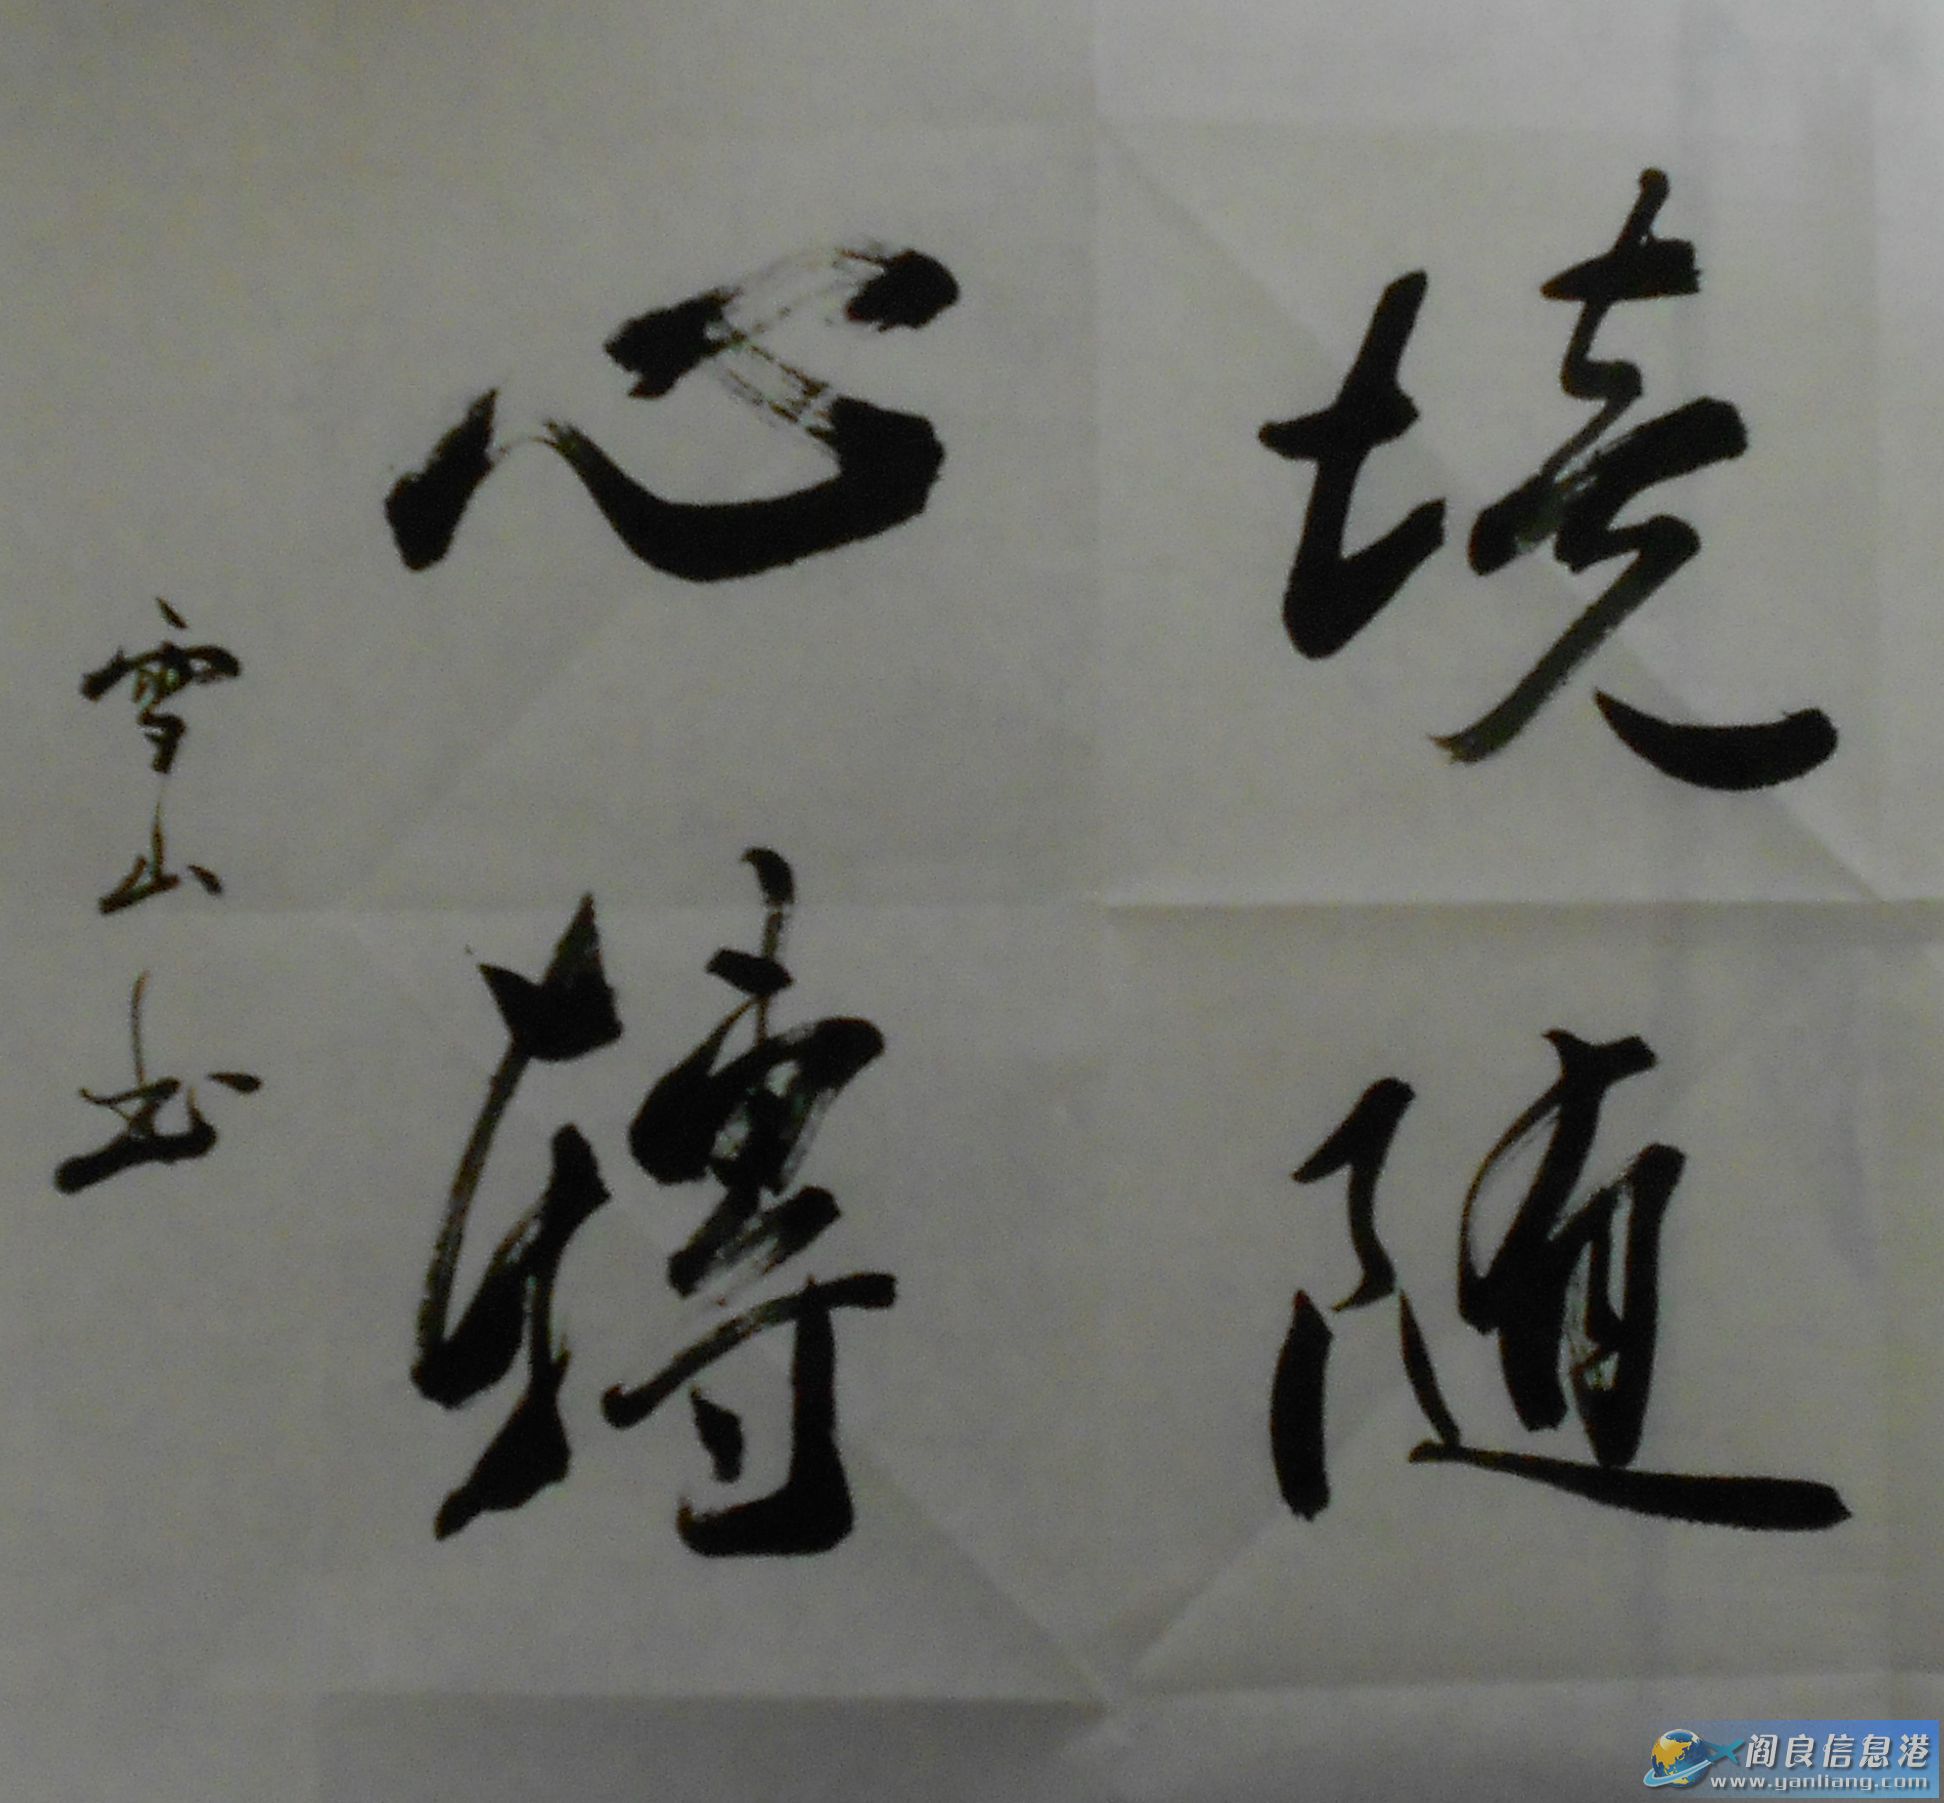 境随
心轉
雪山书
阎良信息港
www.yanliang.com